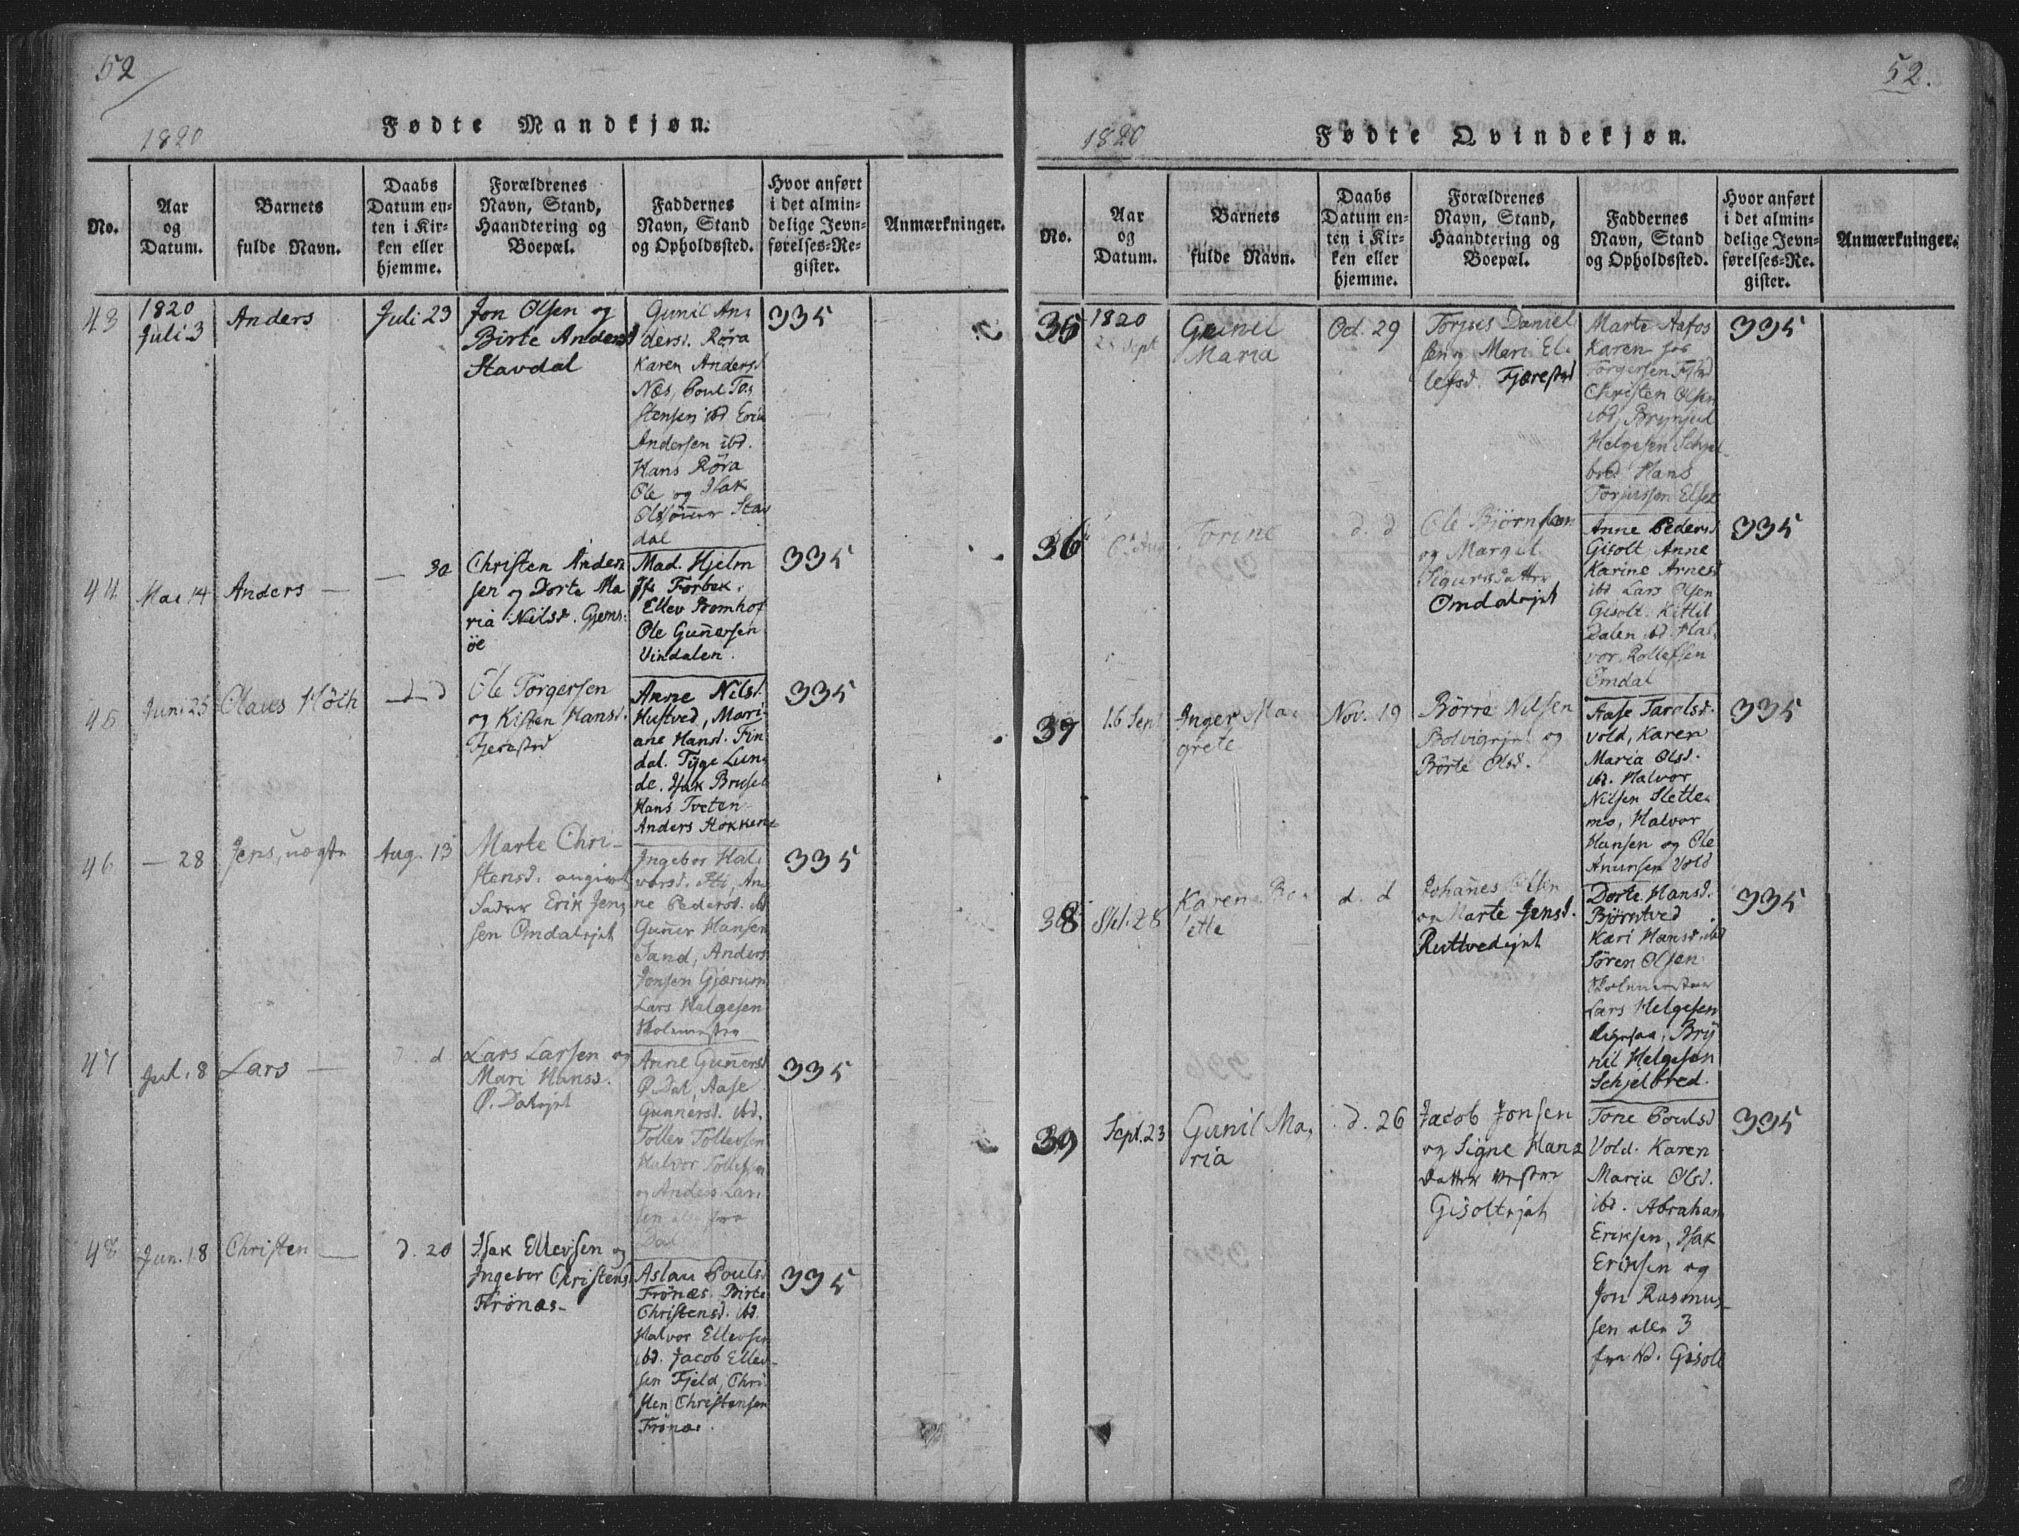 52
1820
Fødte Mandkjøn.
No.
Aar
og
Datum.
Barnets
fulde Navn.
Daabs
Datum en-
ten i Kir-
ken eller
hjemme.
Forældrenes
Navn, Stand,
Haandtering og
Boepæl.
Faddernes
Navn, Stand
og Opholdssted.
Hvor anført
i det almin-
delige Jevn-
førelses-Re-
gister.
Anmærkninger.
43
1820
Juli 3
Anders
Juli 23
Jon Olsen og
Birte Andersd
Stavdal
Gunil An-
dersd. Røra
Karen Andersd
Næs, Poul To-
stensen ibd Erik
Andersen ibd.
Hans Røra
Ole og Isak
Olssønner Stav
dal
335
44
Mai 14
Anders —
— 30
Christen Ander
sen og Dorte Ma
ria Nilsd. Gjems-
øe
Mad. Hjelm
Jfr Forbek.
Ellev Bomhof
Ole Gunersen
Vindalen.
335
45
Juni 25
Olaus Höth
— d — d
Ole Torgersen
og Kisten Hansd.
Fjerestrd
Anne Nilsd.
Hustved, Mari
ane Hansd. Fin
dal. Tyge Lun-
de. Isak Brusel
Hans Tveten
Anders Stokken
335
46
— 28
Jens, uægte
Aug. 13
Marte Chri-
stensd. angivet
Fader Erik Jen-
sen Omdalsejet
Ingebor Hal-
vorsd. An-
ne Pedersd. ibd
Guner Hansen
Sand, Anders
Jonsen Gjærum
Lars Halgesen
Skolemester
335
47
Jul. 8
Lars —
d. d.
Lars Larsen og
Mari Hansd.
Ø. Dalejet
Anne Gunersd
Ø Dal, Aase
Gunnersd. ibd.
Tollev Tollevsen
Halvor Tollefsen
og Anders Lar-
sen alle fra
Dal
335
48
Jun. 18
Christen —
d. 20
Isak Ellevsen og
Ingebor Christensd
Frönæs-
Aslau Pouls
Frönæs. Birte
Christensd. ibd.
Halvor Ellevsen
ibd. Jacob Ellev-
sen Fjeld, Chri-
sten Christensen
Frönæs.
335
52.
1820
Fødte Qvindekjøn.
No.
Aar
og
Datum.
Barnets
fulde Navn.
Daabs
Datum en-
ten i Kir-
ken eller
hjemme.
Forældrenes
Navn, Stand,
Haandtering og
Boepæl.
Faddernes
Navn, Stand
og Opholdssted.
Hvor anført
i det almin-
delige Jevn-
førelses-Re-
gister.
Anmærkninger.
35
1820
Sept
Gunil
Maria
Oct. 29
Torjus Daniel
sen og Mari El-
lefsd. Fjærestrd
Marte Aafos
Karen
Torgersen
Christen Olsen
ibd, Brynjul
Helgesen Schjel-
bred Hans
Torjussen Elset
335
36
6 Aug
Torine
d. d
Ole Björnsen
og Margit
Sigursdatter
Omdalsejet
Anne Pedersd
Gisolt Anne
Karine Arnesd
ibd Lars Olsen
Gisolt. Kittil
Dalen ibd. Hal-
vor Rollefsen
Omdal
335
37
16 Sept
Inger Ma-
grete
Nov. 19
Børre Nilsen
Bolvigejet og
Børte Olsd.
Aase Taralsd.
vold, Karen
Maria Olsd.
ibd. Halvor
Nilsen Slette-
mo, Halvor
Hansen og Ole
Anunsen Vold
335
38
Sept. 28
Karen Bo-
lette
d. d
Johanes Olsen
og Marte Jensd.
Ruttvedejet
Dorte Hansd.
Björntved
Kari Hansd. ibd
Sören Olsen
Skolemester
Lars Helgesen
Bry
nil Helgesen
Schjelbred.
335
39
Sept. 23
Gunil Ma-
ria
d. 26
Jacob Jonsen
og Signe Hans
datter Vestre
Gisoltejet
Tone Poulsd
Vold. Karen
Maria Olsd.
ibd. Abraham
Eriksen, Isak
Eriksen og
Jon Rasmus-
sen alle 3
fra Nd. Gisolt
335